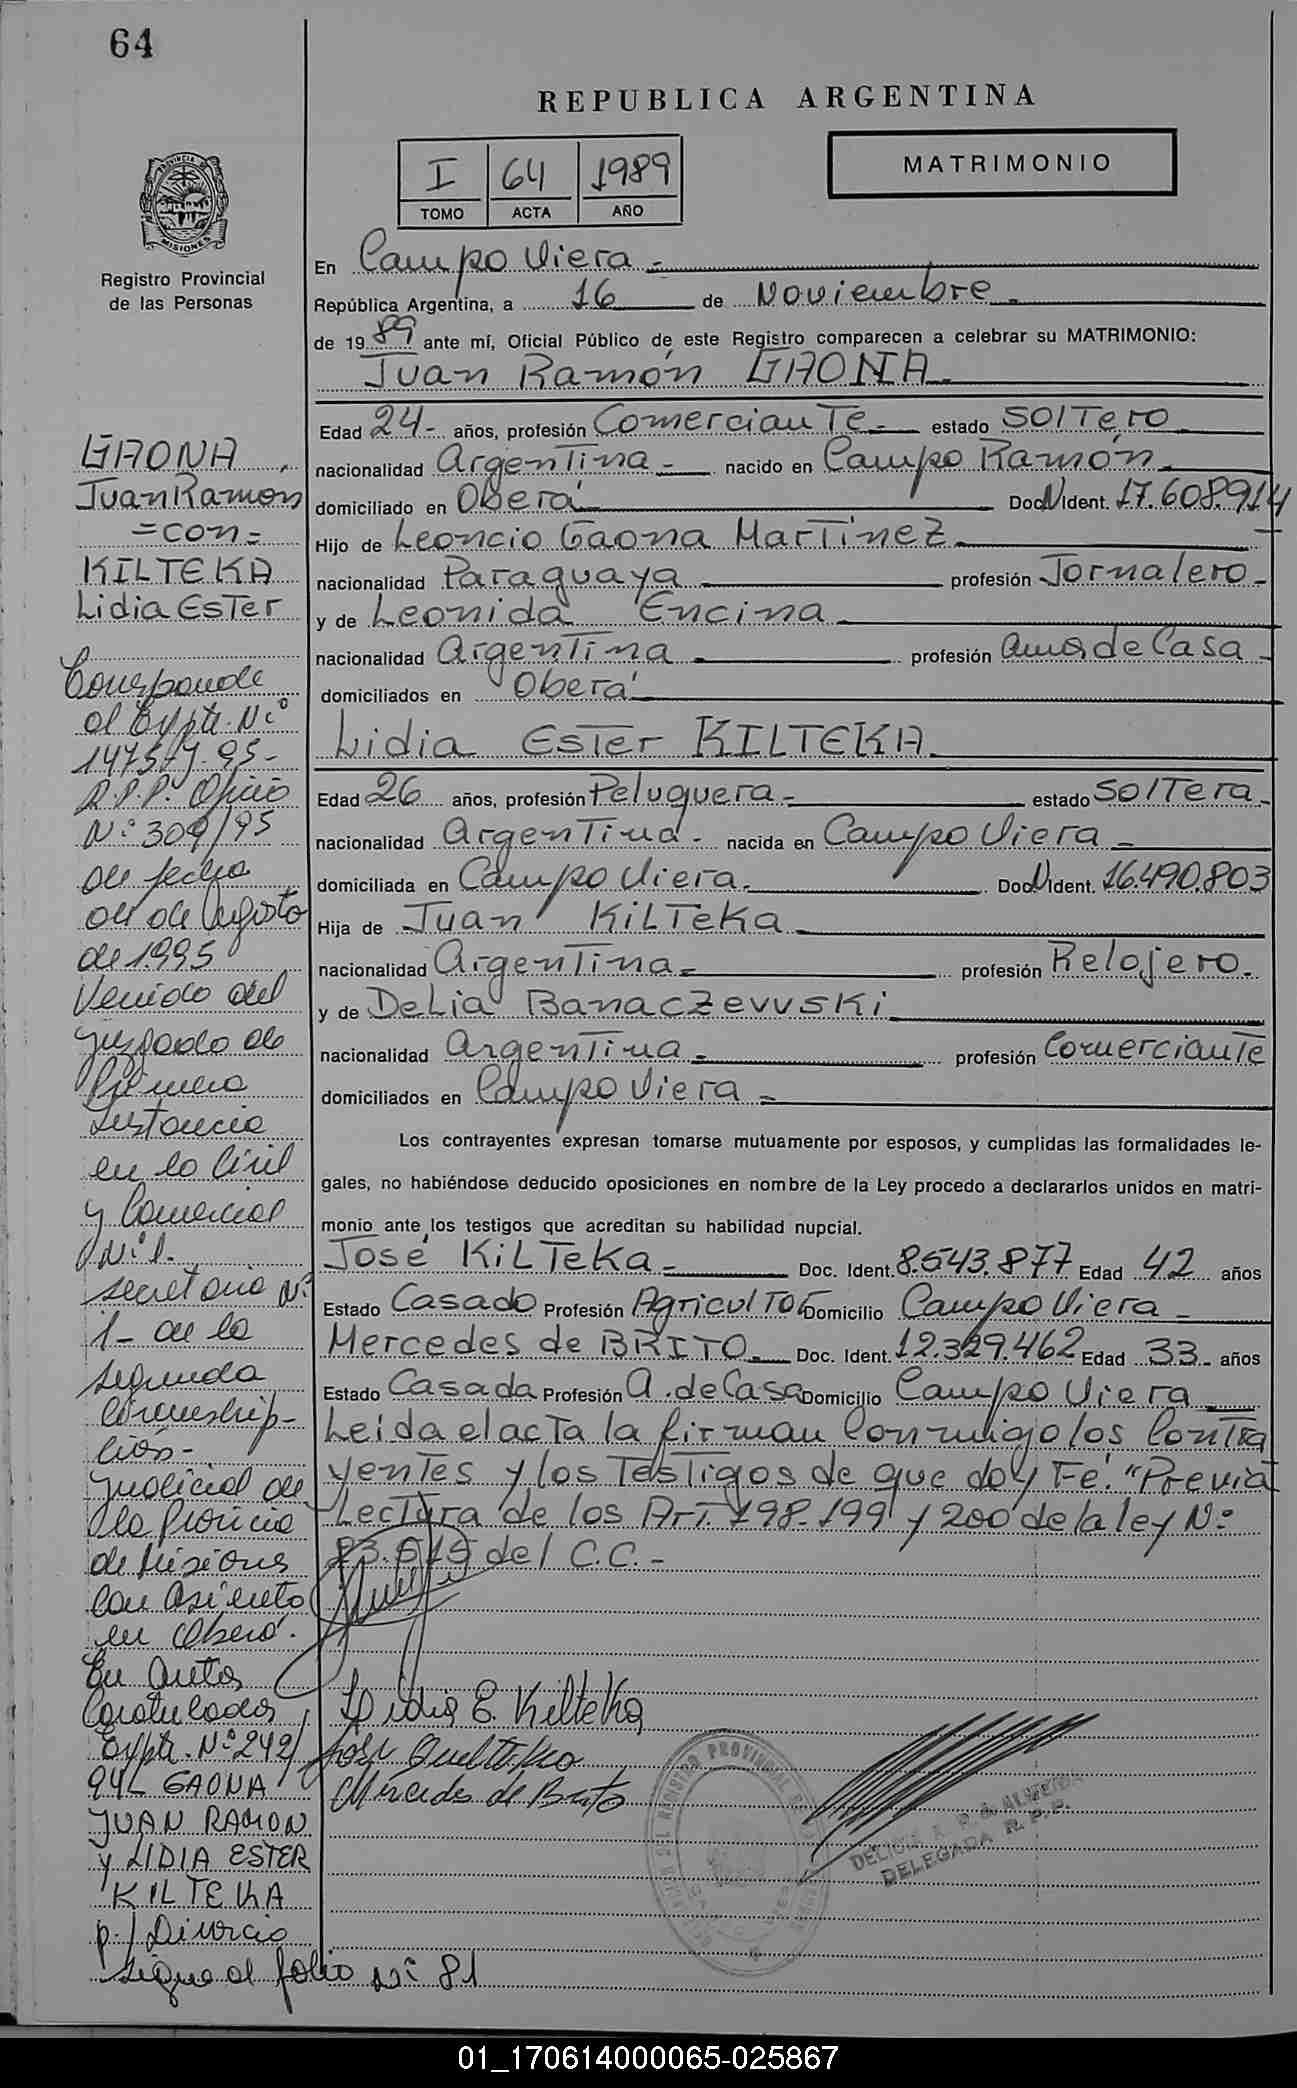 64
REPUBLICA ARGENTINA
MATRIMONIO
I 64 1989
TOMO ACTA AÑO
PROVINCIA DE MISIONES
Registro Provincial
de las Personas
En Campo Viera.-
República Argentina, a 16 de Noviembre.
de 1989 ante mí, Oficial Público de este Registro comparecen a celebrar su MATRIMONIO:
Juan Ramón GAONA.
Edad 24- años, profesión Comerciante.- estado Soltero
nacionalidad Argentina.- nacido en Campo Ramón.
domiciliado en Oberá Doc N Ident. 17.608.914
Hijo de Leoncio Gaona Martinez
nacionalidad Paraguaya profesión Jornalero-
y de Leonida Encina
nacionalidad Argentina profesión Ama de Casa-
domiciliados en Oberá
Lidia Ester KILTEKA
Edad 26 años, profesión Peluquera.- estado Soltera-
nacionalidad Argentina.- nacida en Campo Viera-
domiciliada en Campo Viera. Doc N Ident. 16.490.803
Hija de Juan KilTeKa
nacionalidad Argentina.- profesión Relojero.
y de Delia Banaczevvski
nacionalidad Argentina.- profesión Comerciante
domiciliados en Campo Viera -
Los contrayentes expresan tomarse mutuamente por esposos, y cumplidas las formalidades le-
gales, no habiéndose deducido oposiciones en nombre de la Ley procedo a declararlos unidos en matri-
monio ante los testigos que acreditan su habilidad nupcial.
José KilTeKa- Doc. Ident. 8.543.877 Edad 42 años
Estado Casado Profesión Agricultor Domicilio Campo Viera-
Mercedes de BRITO. Doc. Ident. 12.329.462 Edad 33- años
Estado Casada Profesión A. de Casa Domicilio Campo Viera
Leida el acta la firman Conmigo los Contra
yentes y los Testigos de que doy Fé. "Previa
Lectura de los Art. 198-199 y 200 de la ley N°
23.515 del C.C.-
Lidia E. Kilteka
Mercedes de Brito
REGISTRO PROVINCIAL
R. S. ALMEIDA
DELEGADA R. P. P.
GAONA,
Juan Ramon
=con=
KILTEKA
Lidia Ester
Corresponde
al Expte. N°
1475/J-95-
R.P.P. Oficio
N° 309/95
de fecha
de Agosto
de 1995
Venido del
Juzgado de
Primera
Instancia
en lo Civil
y Comercial
N° 1.
Secretaria N°
1- de la
Segunda
Circunscrip-
ción-
Judicial de
la Provincia
de Misiones
con Asiento
en Oberá.
En Autos
Caratulados
Expte. N° 249/
94L GAONA
JUAN RAMON
y LIDIA ESTER
KILTEKA
p./ Divorcio
Sigue al folio N° 81
01_170614000065-025867